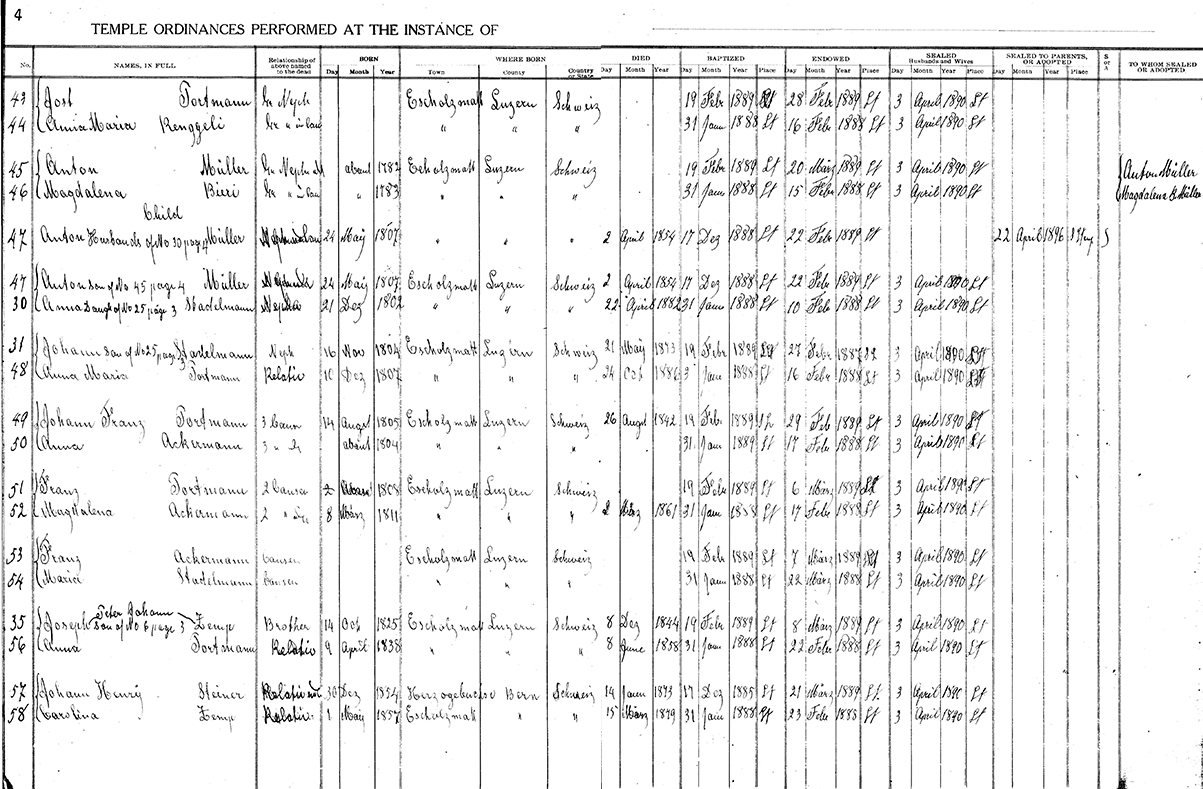 4
TEMPLE ORDINANCES PERFORMED AT THE INSTANCE OF
No. NAMES, IN FULL Relationship of above named to the dead BORN WHERE BORN DIED BAPTIZED ENDOWED SEALED Husbands and Wives SEALED TO PARENTS, OR ADOPTED S or A TO WHOM SEALED OR ADOPTED
Day Month Year Town County Country or State Day Month Year Day Month Year Place Day Month Year Place Day Month Year Place Day Month Year Place
43 Jost Portmann Gr Neph Escholzmatt Luzern Schweiz 19 Febr 1889 Lt 28 Febr 1889 Lt 3 April 1890 Lt
44 Anna Maria Renggeli Gr " in law " " " 31 Jann 1888 Lt 16 Febr 1888 Lt 3 April 1890 Lt
45 Anton Müller Gr Neph about 1782 Escholzmatt Luzern Schweiz 19 Febr 1889 Lt 20 März 1889 Lt 3 April 1890 Lt Anton Müller
46 Magdalena Bieri Gr " in law " 1783 " " " 31 Jann 1888 Lt 15 Febr 1888 Lt 3 April 1890 Lt Magdalena B. Müller
Child
47 Anton Husbands of No 30 page 4 Müller 24 Maÿ 1807 " " " 2 April 1854 17 Dez 1888 Lt 22 Febr 1889 Lt 22 April 1896 S
47 Anton son of No 45 page 4 Müller 24 Maÿ 1807 Escholzmatt Luzern Schweiz 2 April 1854 17 Dez 1888 Lt 22 Feb 1889 Lt 3 April 1890 Lt
30 Anna Daught of No 25 page 3 Stadelmann 21 Dez 1802 " " " 22 April 1882 31 Jann 1888 Lt 10 Febr 1888 Lt 3 April 1890 Lt
31 Johann son of No 25 page 3 Stadelmann Neph 16 Nov 1804 Escholzmatt Luzern Schweiz 21 Maÿ 1873 19 Febr 1889 Lt 27 Febr 1889 Lt 3 April 1890 Lt
48 Anna Maria Portmann Relativ 10 Dez 1807 " " " 24 Oct 1886 3 Jann 1888 Lt 16 Febr 1888 Lt 3 April 1890 Lt
49 Johann Franz Portmann 3 Causn 14 Augst 1805 Escholzmatt Luzern Schweiz 26 Augst 1842 19 Febr 1889 Lt 29 Feb 1889 Lt 3 April 1890 Lt
50 Anna Ackermann 3 " about 1804 " " " 31 Jann 1889 Lt 17 Febr 1888 Lt 3 April 1890 Lt
51 Franz Portmann 2 Causen 2 1808 Escholzmatt Luzern Schweiz 19 Febr 1889 Lt 6 März 1889 Lt 3 April 1890 Lt
52 Magdalena Ackermann 2 " 8 März 1811 " " " 2 März 1861 31 Jann 1888 Lt 17 Febr 1888 Lt 3 April 1890 Lt
53 Franz Ackermann Causen Escholzmatt Luzern Schweiz 19 Febr 1889 Lt 7 März 1889 Lt 3 April 1890 Lt
54 Maria Stadelmann Causen " " " 31 Jann 1888 Lt 22 März 1888 Lt 3 April 1890 Lt
Peter Johann
35 Joseph son of No 6 page 3 Zemp Brother 14 Oct 1825 Escholzmatt Luzern Schweiz 8 Dez 1844 19 Febr 1889 Lt 8 März 1889 Lt 3 April 1890 Lt
56 Anna Portmann Relativ 9 April 1838 " " " 8 June 1858 31 Jann 1888 Lt 22 Febr 1888 Lt 3 April 1890 Lt
57 Johann Henrÿ Steiner Relativ 30 Dez 1854 Herzogebuchse Bern Schweiz 14 Jann 1873 17 Dez 1885 Lt 21 März 1889 Lt 3 April 1890 Lt
58 Carolina Zemp Relativ 1 Maÿ 1857 Escholzmatt " " 15 März 1879 31 Jann 1888 Lt 23 Febr 1888 Lt 3 April 1890 Lt